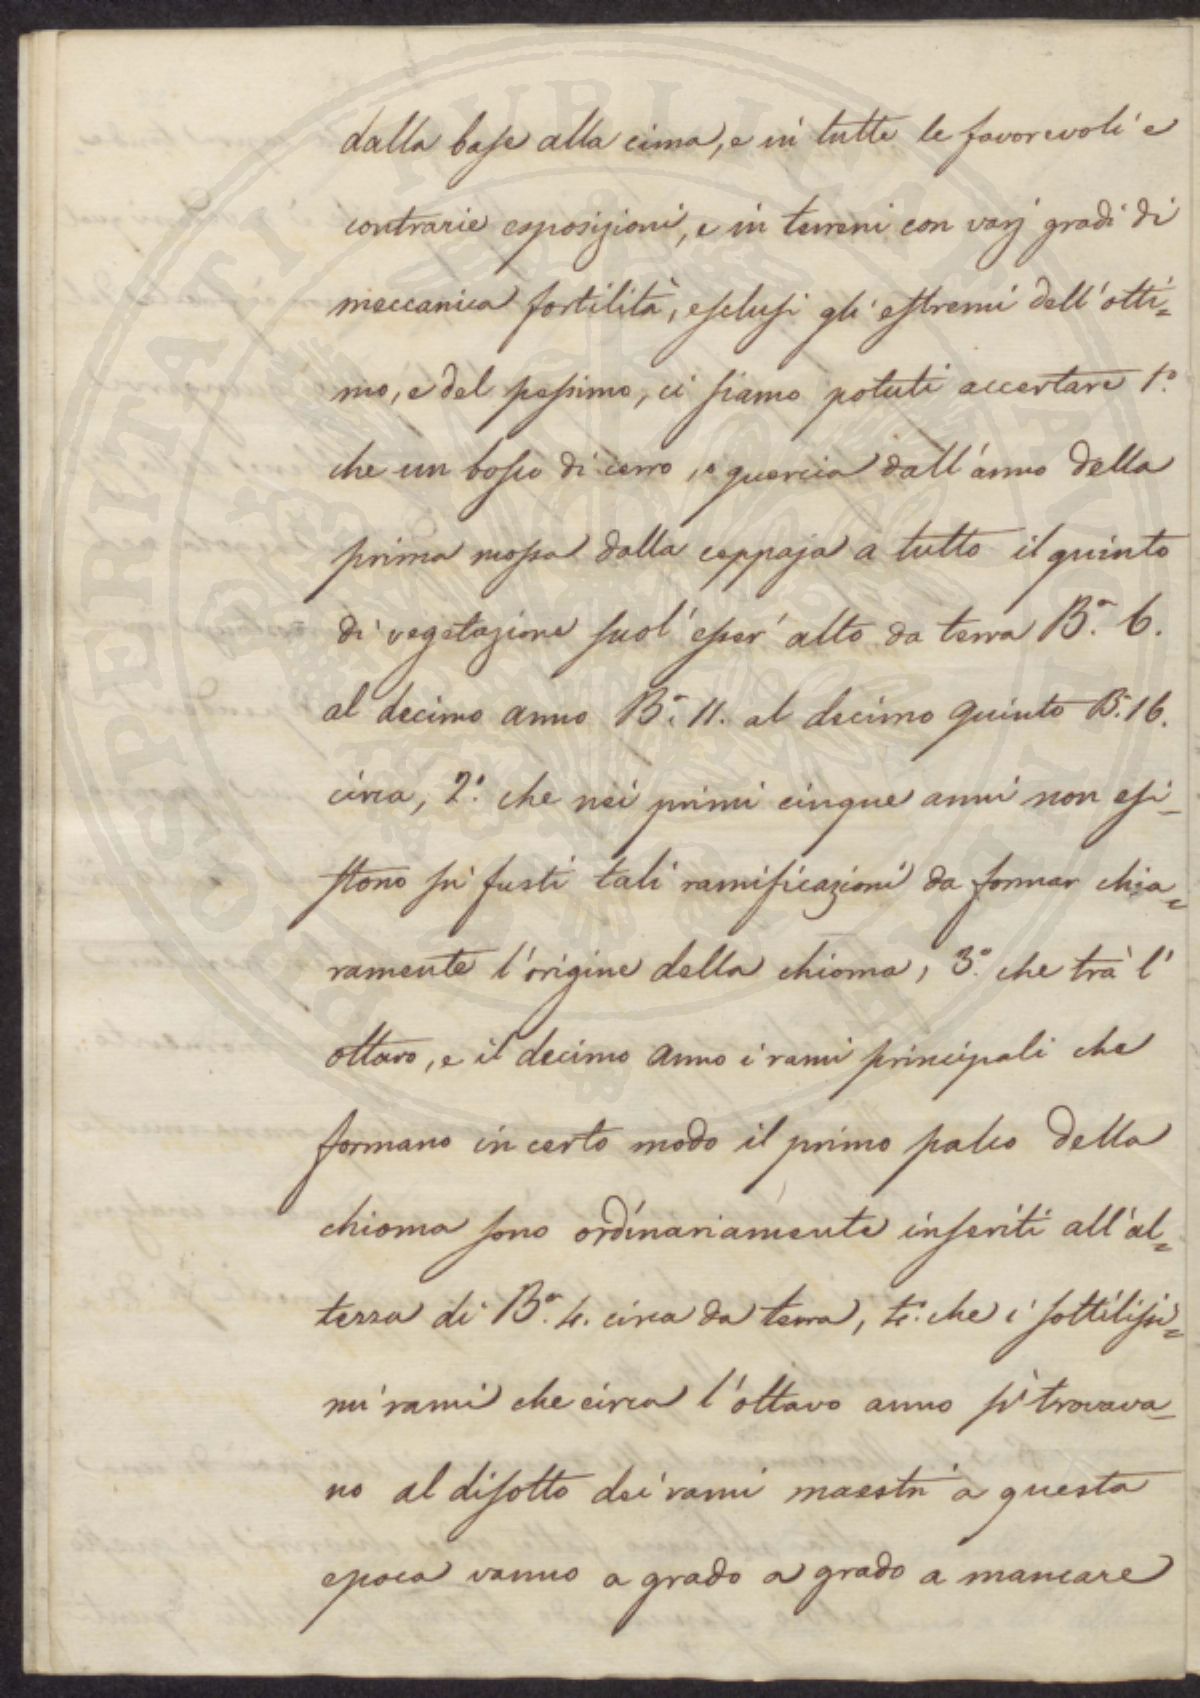 dalla base alla cima, e in tutte le favorevoli e
contrarie esposizioni, e in terreni con varj gradi di
meccanica fertilità, esclusi gli estremi dell'otti=
mo, e del pessimo, ci siamo potuti accertare 1.º
che un bosco di cerro, e quercia dall'anno della
prima mossa dalla ceppaja a tutto il quinto
di vegetazione suol' esser' alto da terra B.ª 6.
al decimo anno B.ª 11. al decimo quinto B.ª 16.
circa, 2.º che nei primi cinque anni non esi=
stono su' fusti tali ramificazioni da formar chia=
ramente l'origine della chioma, 3.º che trà l'
ottavo, e il decimo anno i rami principali che
formano in certo modo il primo palco della
chioma sono ordinariamente inseriti all'al=
tezza di B.ª 4. circa da terra, 4.º che i sottilissi=
mi rami che circa l'ottavo anno si trovava=
no al disotto dei rami maestri a questa
epoca vanno a grado a grado a mancare
PROSPERITATI PUBLICAE AUGENDAE